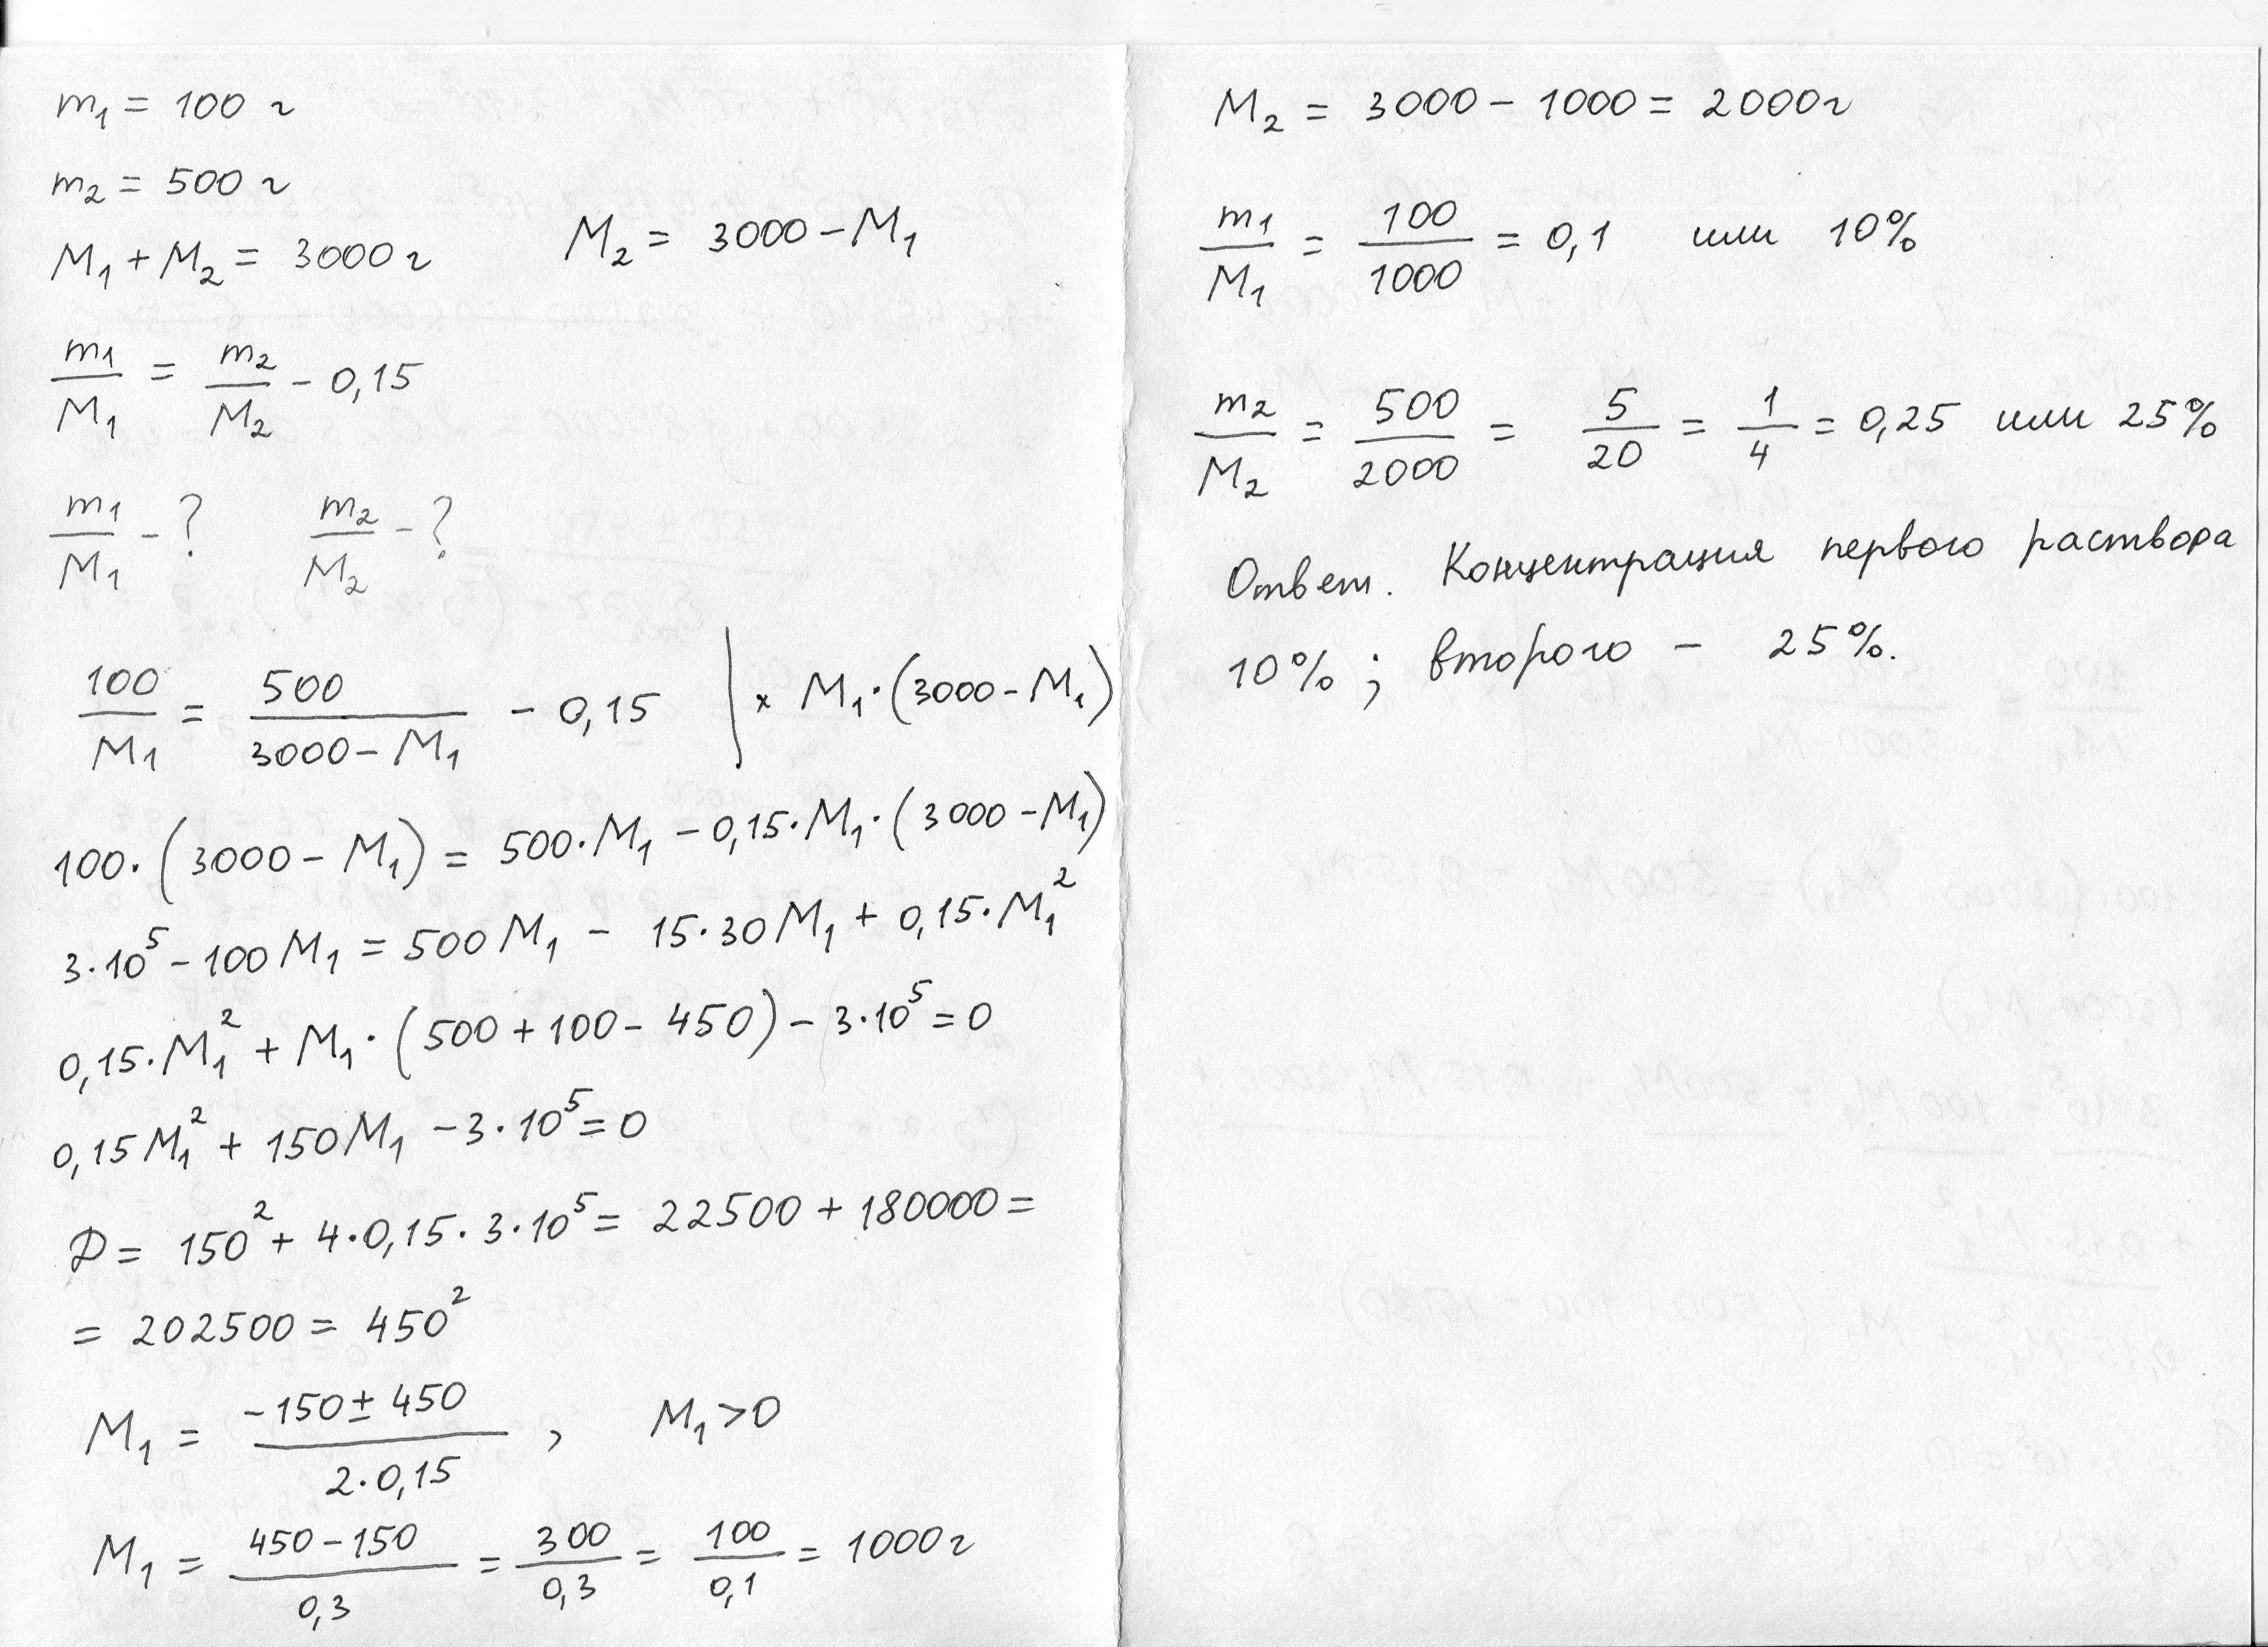 m₁ = 100 г
m₂ = 500 г
M₁ + M₂ = 3000 г M₂ = 3000 - M₁
m₁/M₁ = m₂/M₂ - 0,15
m₁/M₁ - ? m₂/M₂ - ?
100/M₁ = 500/(3000 - M₁) - 0,15 | × M₁·(3000 - M₁)
100·(3000 - M₁) = 500·M₁ - 0,15·M₁·(3000 - M₁)
3·10⁵ - 100M₁ = 500M₁ - 15·30M₁ + 0,15·M₁²
0,15·M₁² + M₁·(500 + 100 - 450) - 3·10⁵ = 0
0,15M₁² + 150M₁ - 3·10⁵ = 0
D = 150² + 4·0,15·3·10⁵ = 22500 + 180000 =
= 202500 = 450²
M₁ = (-150 ± 450)/(2·0,15) , M₁ > 0
M₁ = (450 - 150)/0,3 = 300/0,3 = 100/0,1 = 1000 г
M₂ = 3000 - 1000 = 2000 г
m₁/M₁ = 100/1000 = 0,1 или 10%
m₂/M₂ = 500/2000 = 5/20 = 1/4 = 0,25 или 25%
Ответ. Концентрация первого раствора
10%; второго - 25%.